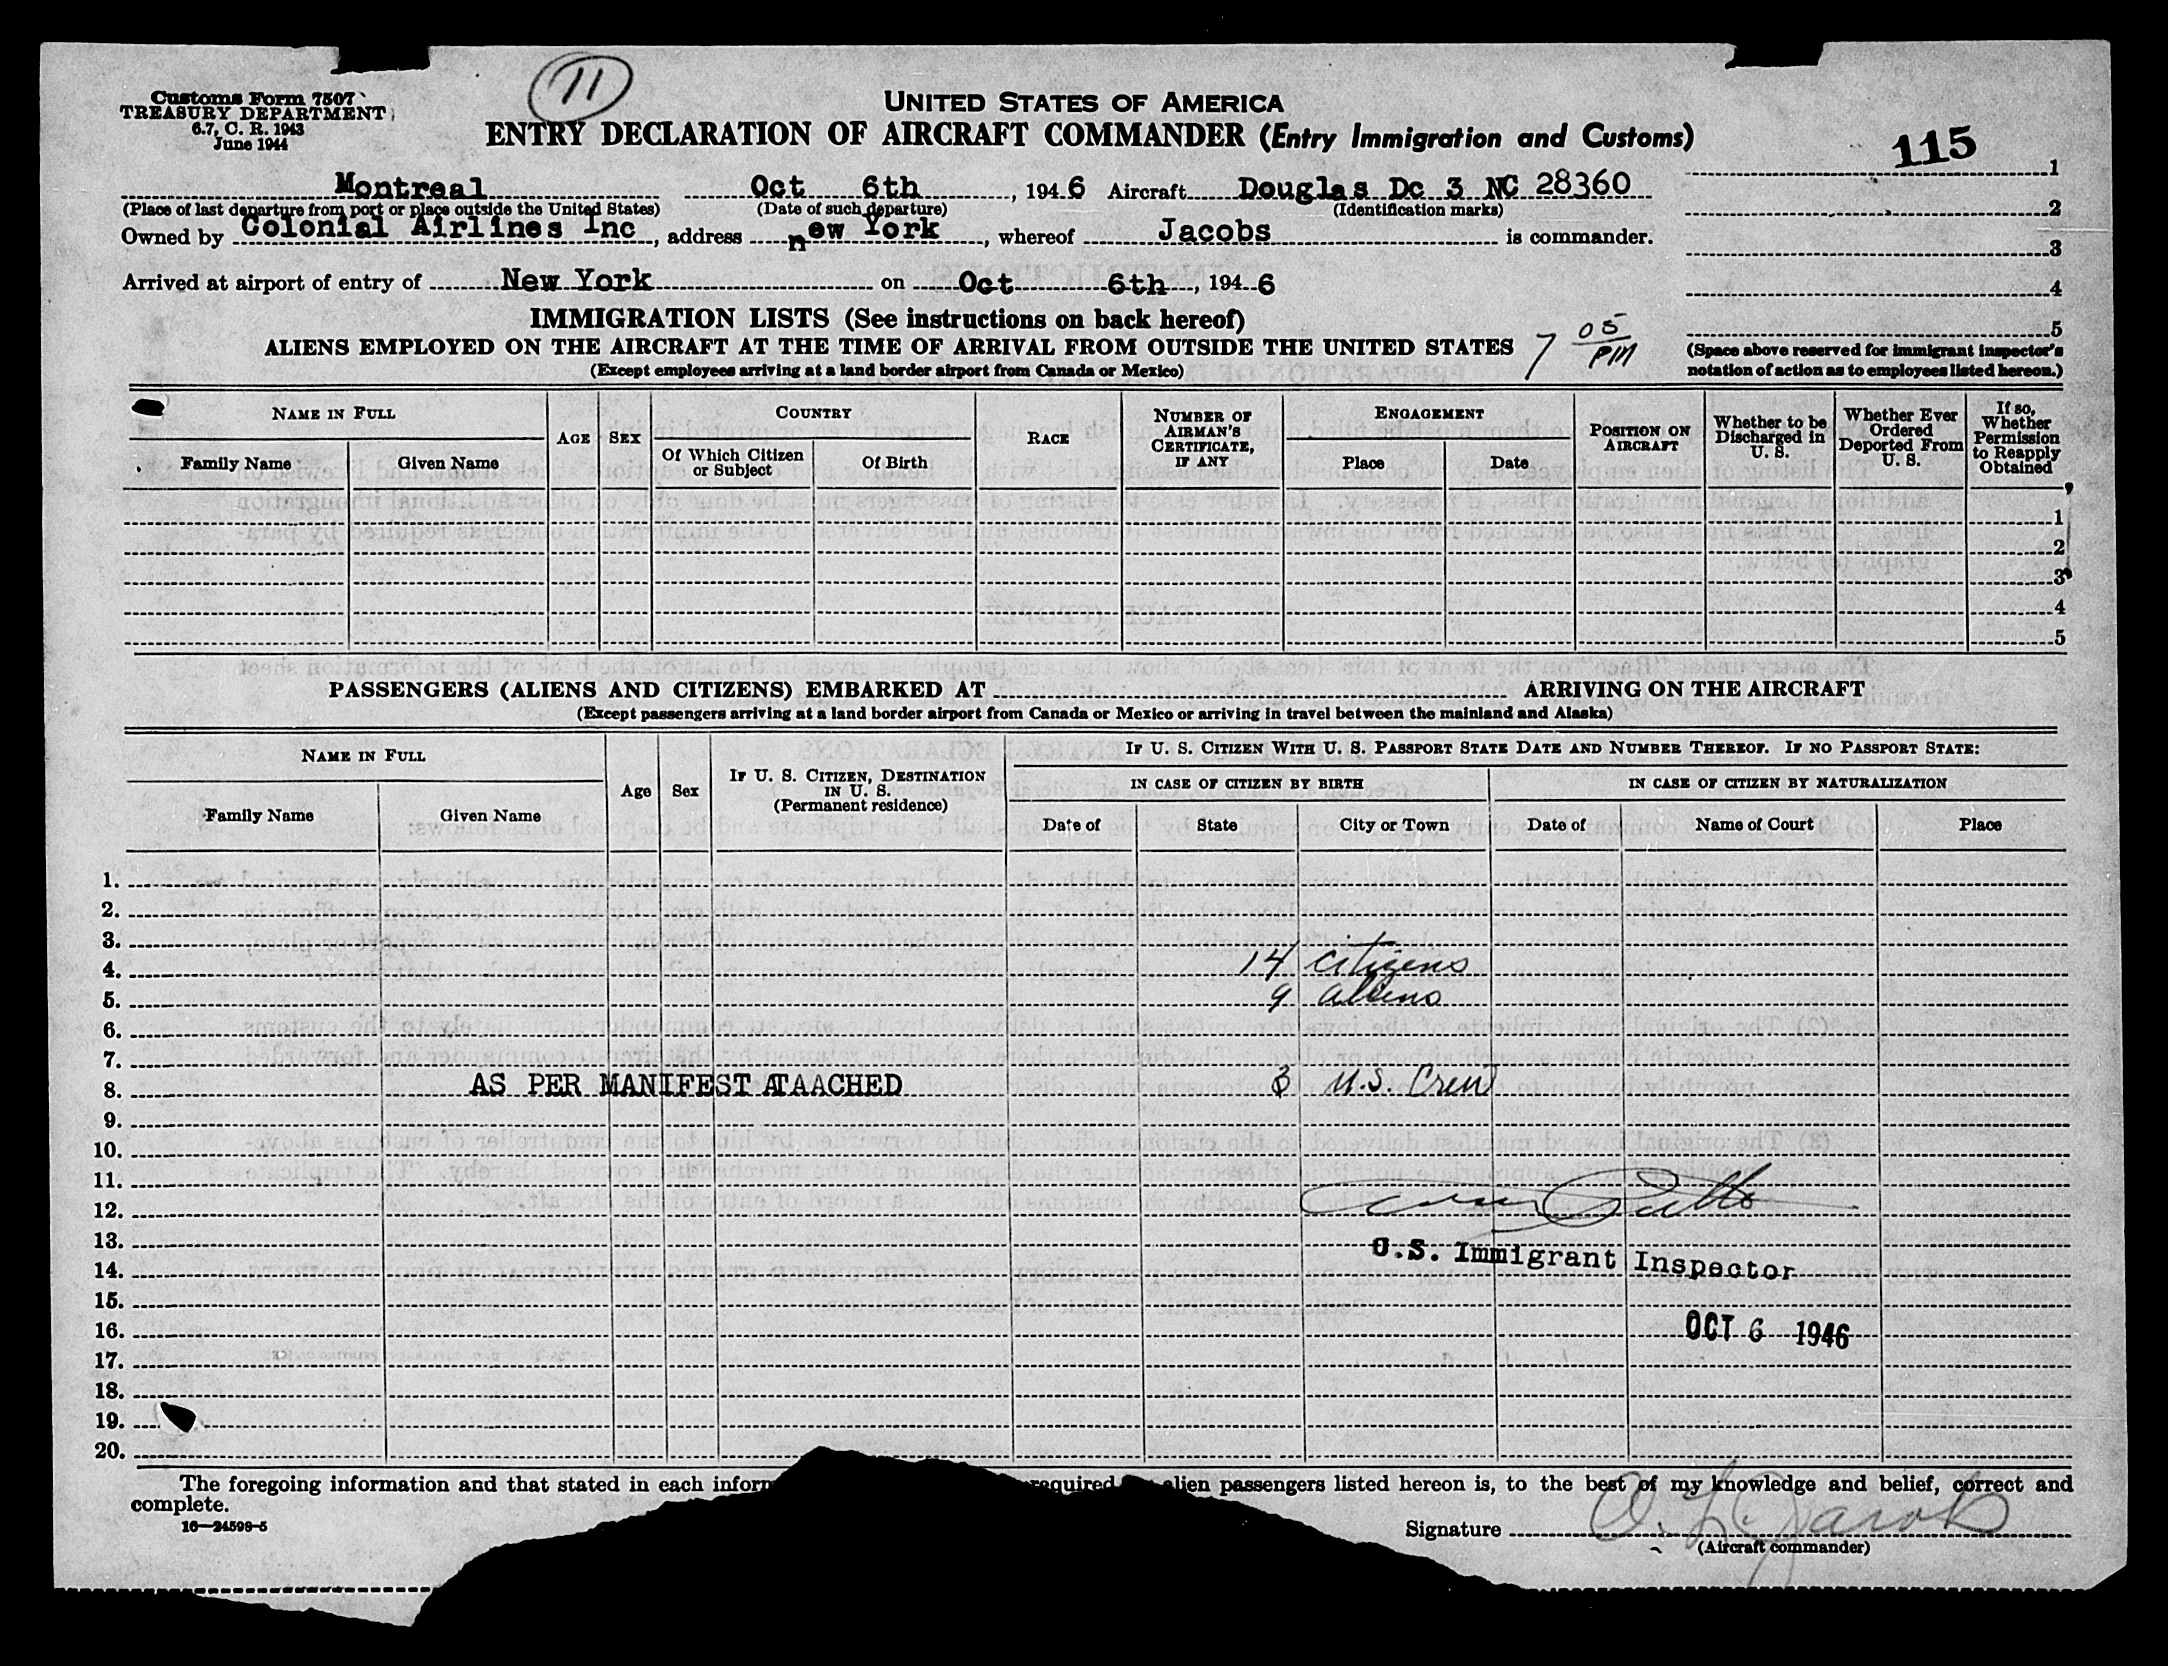 11
Customs Form 7507
TREASURY DEPARTMENT
6.7, C. R. 1943
June 1944
UNITED STATES OF AMERICA
ENTRY DECLARATION OF AIRCRAFT COMMANDER (Entry Immigration and Customs)
115
Montreal Oct 6th, 1946 Aircraft Douglas Dc 3 NC 28360
(Place of last departure from port or place outside the United States) (Date of such departure) (Identification marks)
Owned by Colonial Airlines Inc, address new York, whereof Jacobs is commander.
Arrived at airport of entry of New York on Oct 6th, 1946
1
2
3
4
5
(Space above reserved for immigrant inspector's
notation of action as to employees listed hereon.)
IMMIGRATION LISTS (See instructions on back hereof)
ALIENS EMPLOYED ON THE AIRCRAFT AT THE TIME OF ARRIVAL FROM OUTSIDE THE UNITED STATES 7 05 PM
(Except employees arriving at a land border airport from Canada or Mexico)
NAME IN FULL
Family Name Given Name
AGE SEX
COUNTRY
Of Which Citizen or Subject Of Birth
RACE
NUMBER OF AIRMAN'S CERTIFICATE, IF ANY
ENGAGEMENT
Place Date
POSITION ON AIRCRAFT
Whether to be Discharged in U. S.
Whether Ever Ordered Deported From U. S.
If so, Whether Permission to Reapply Obtained
1
2
3
4
5
PASSENGERS (ALIENS AND CITIZENS) EMBARKED AT ARRIVING ON THE AIRCRAFT
(Except passengers arriving at a land border airport from Canada or Mexico or arriving in travel between the mainland and Alaska)
NAME IN FULL
Family Name Given Name
Age Sex
IF U. S. CITIZEN, DESTINATION IN U. S.
(Permanent residence)
IF U. S. CITIZEN WITH U. S. PASSPORT STATE DATE AND NUMBER THEREOF. IF NO PASSPORT STATE:
IN CASE OF CITIZEN BY BIRTH IN CASE OF CITIZEN BY NATURALIZATION
Date of State City or Town Date of Name of Court Place
1.
2.
3.
4. 14 citizens
5. 9 aliens
6.
7.
8. AS PER MANIFEST ATAACHED 3 U.S. Crew
9.
10.
11.
12.
13. U.S. Immigrant Inspector
14.
15.
16. OCT 6 1946
17.
18.
19.
20.
The foregoing information and that stated in each required alien passengers listed hereon is, to the best of my knowledge and belief, correct and
complete.
16—24598-5
Signature
(Aircraft commander)